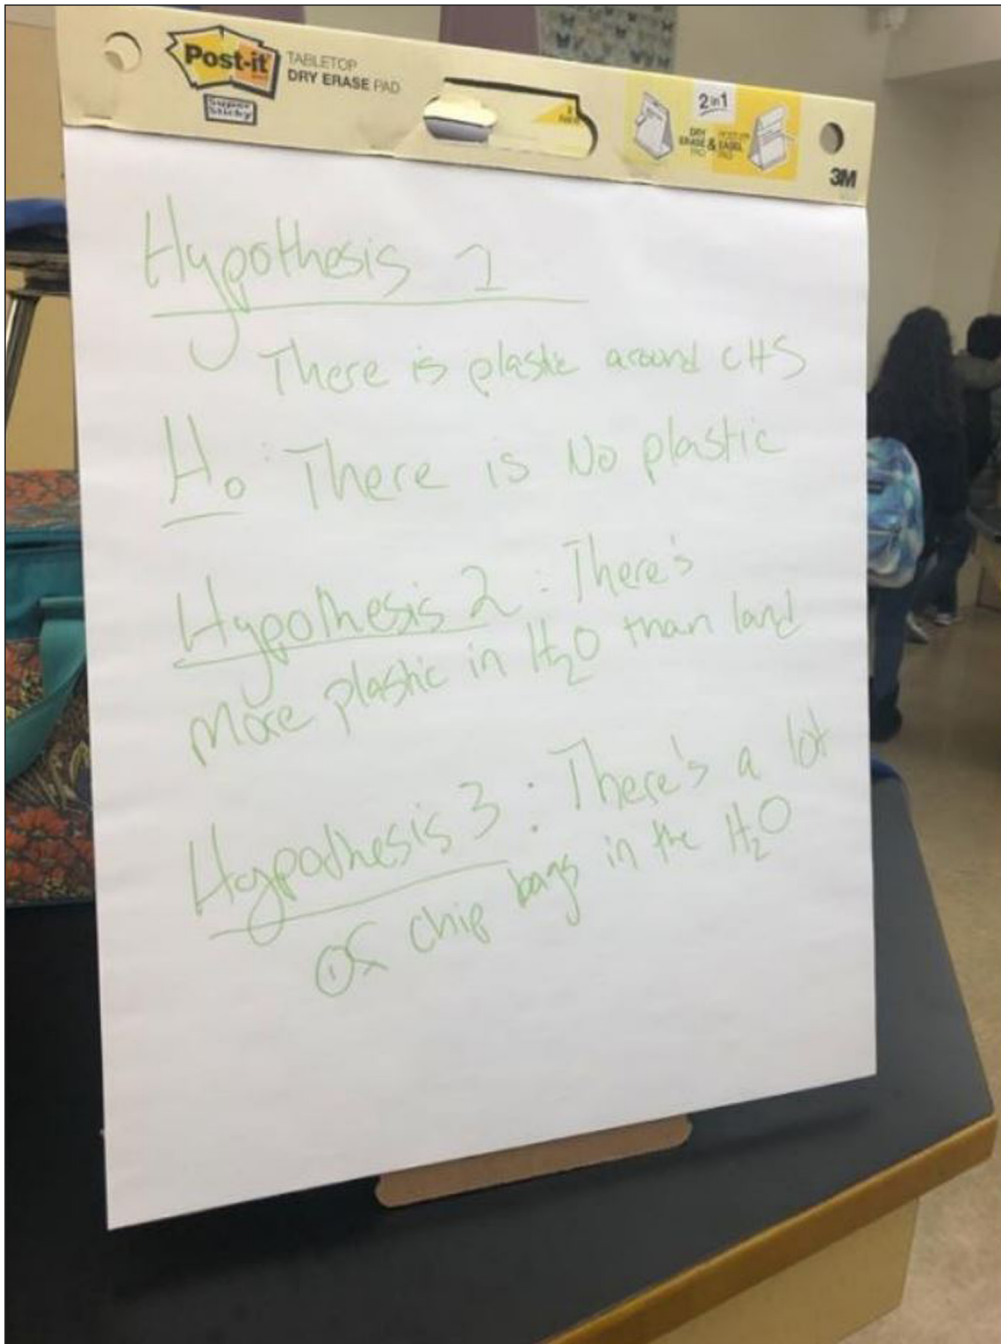 Post-it
TABLETOP
DRY ERASE PAD
Super
Sticky
2 in 1
DRY
ERASE & EASEL
PAD PAD
3M
Hypothesis 1
There is plastic around CHS
H₀: There is No plastic
Hypothesis 2: There's
More plastic in H₂O than land
Hypothesis 3: There's a lot
of chip bags in the H₂O